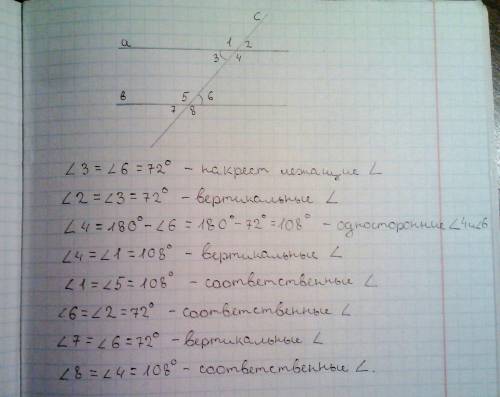 c
a 1 2
3 4
в 5 6
7 8
∠3 = ∠6 = 72° - накрест лежащие ∠
∠2 = ∠3 = 72° - вертикальные ∠
∠4 = 180° - ∠6 = 180° - 72° = 108° - односторонние ∠4и∠6
∠4 = ∠1 = 108° - вертикальные ∠
∠1 = ∠5 = 108° - соответственные ∠
∠6 = ∠2 = 72° - соответственные ∠
∠7 = ∠6 = 72° - вертикальные ∠
∠8 = ∠4 = 108° - соответственные ∠.